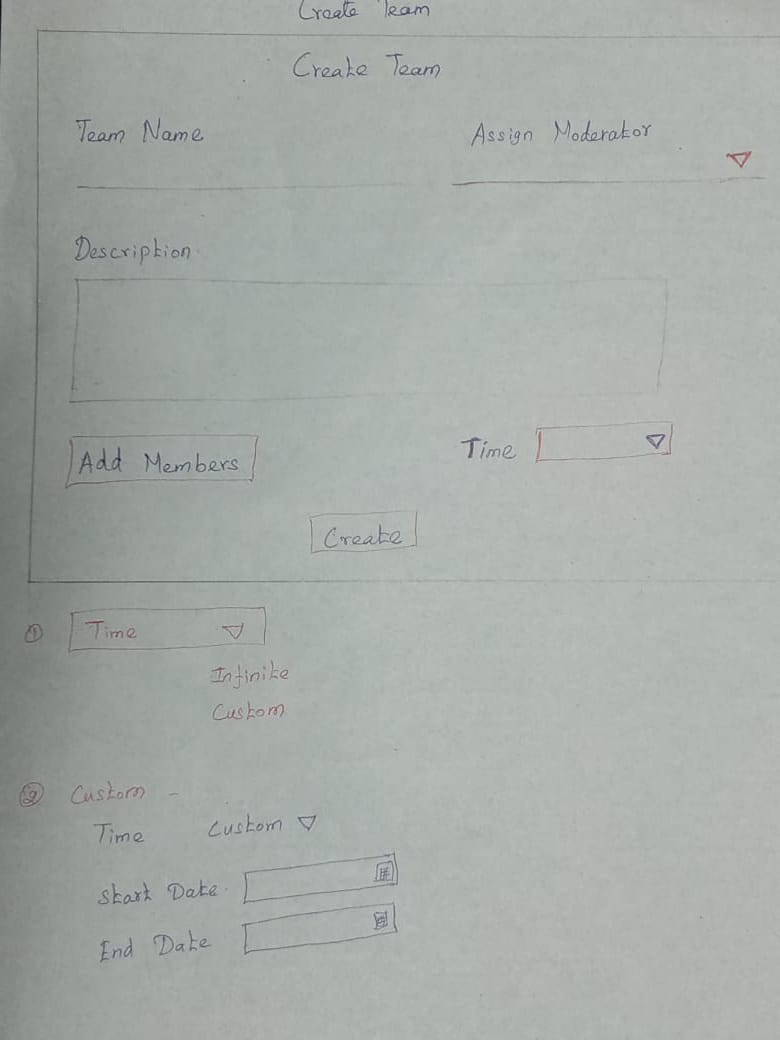 Create Team
Create Team
Team Name Assign Moderator
Description
Add Members Time
Create
① Time
Infinite
Custom
② Custom -
Time Custom
Start Date
End Date